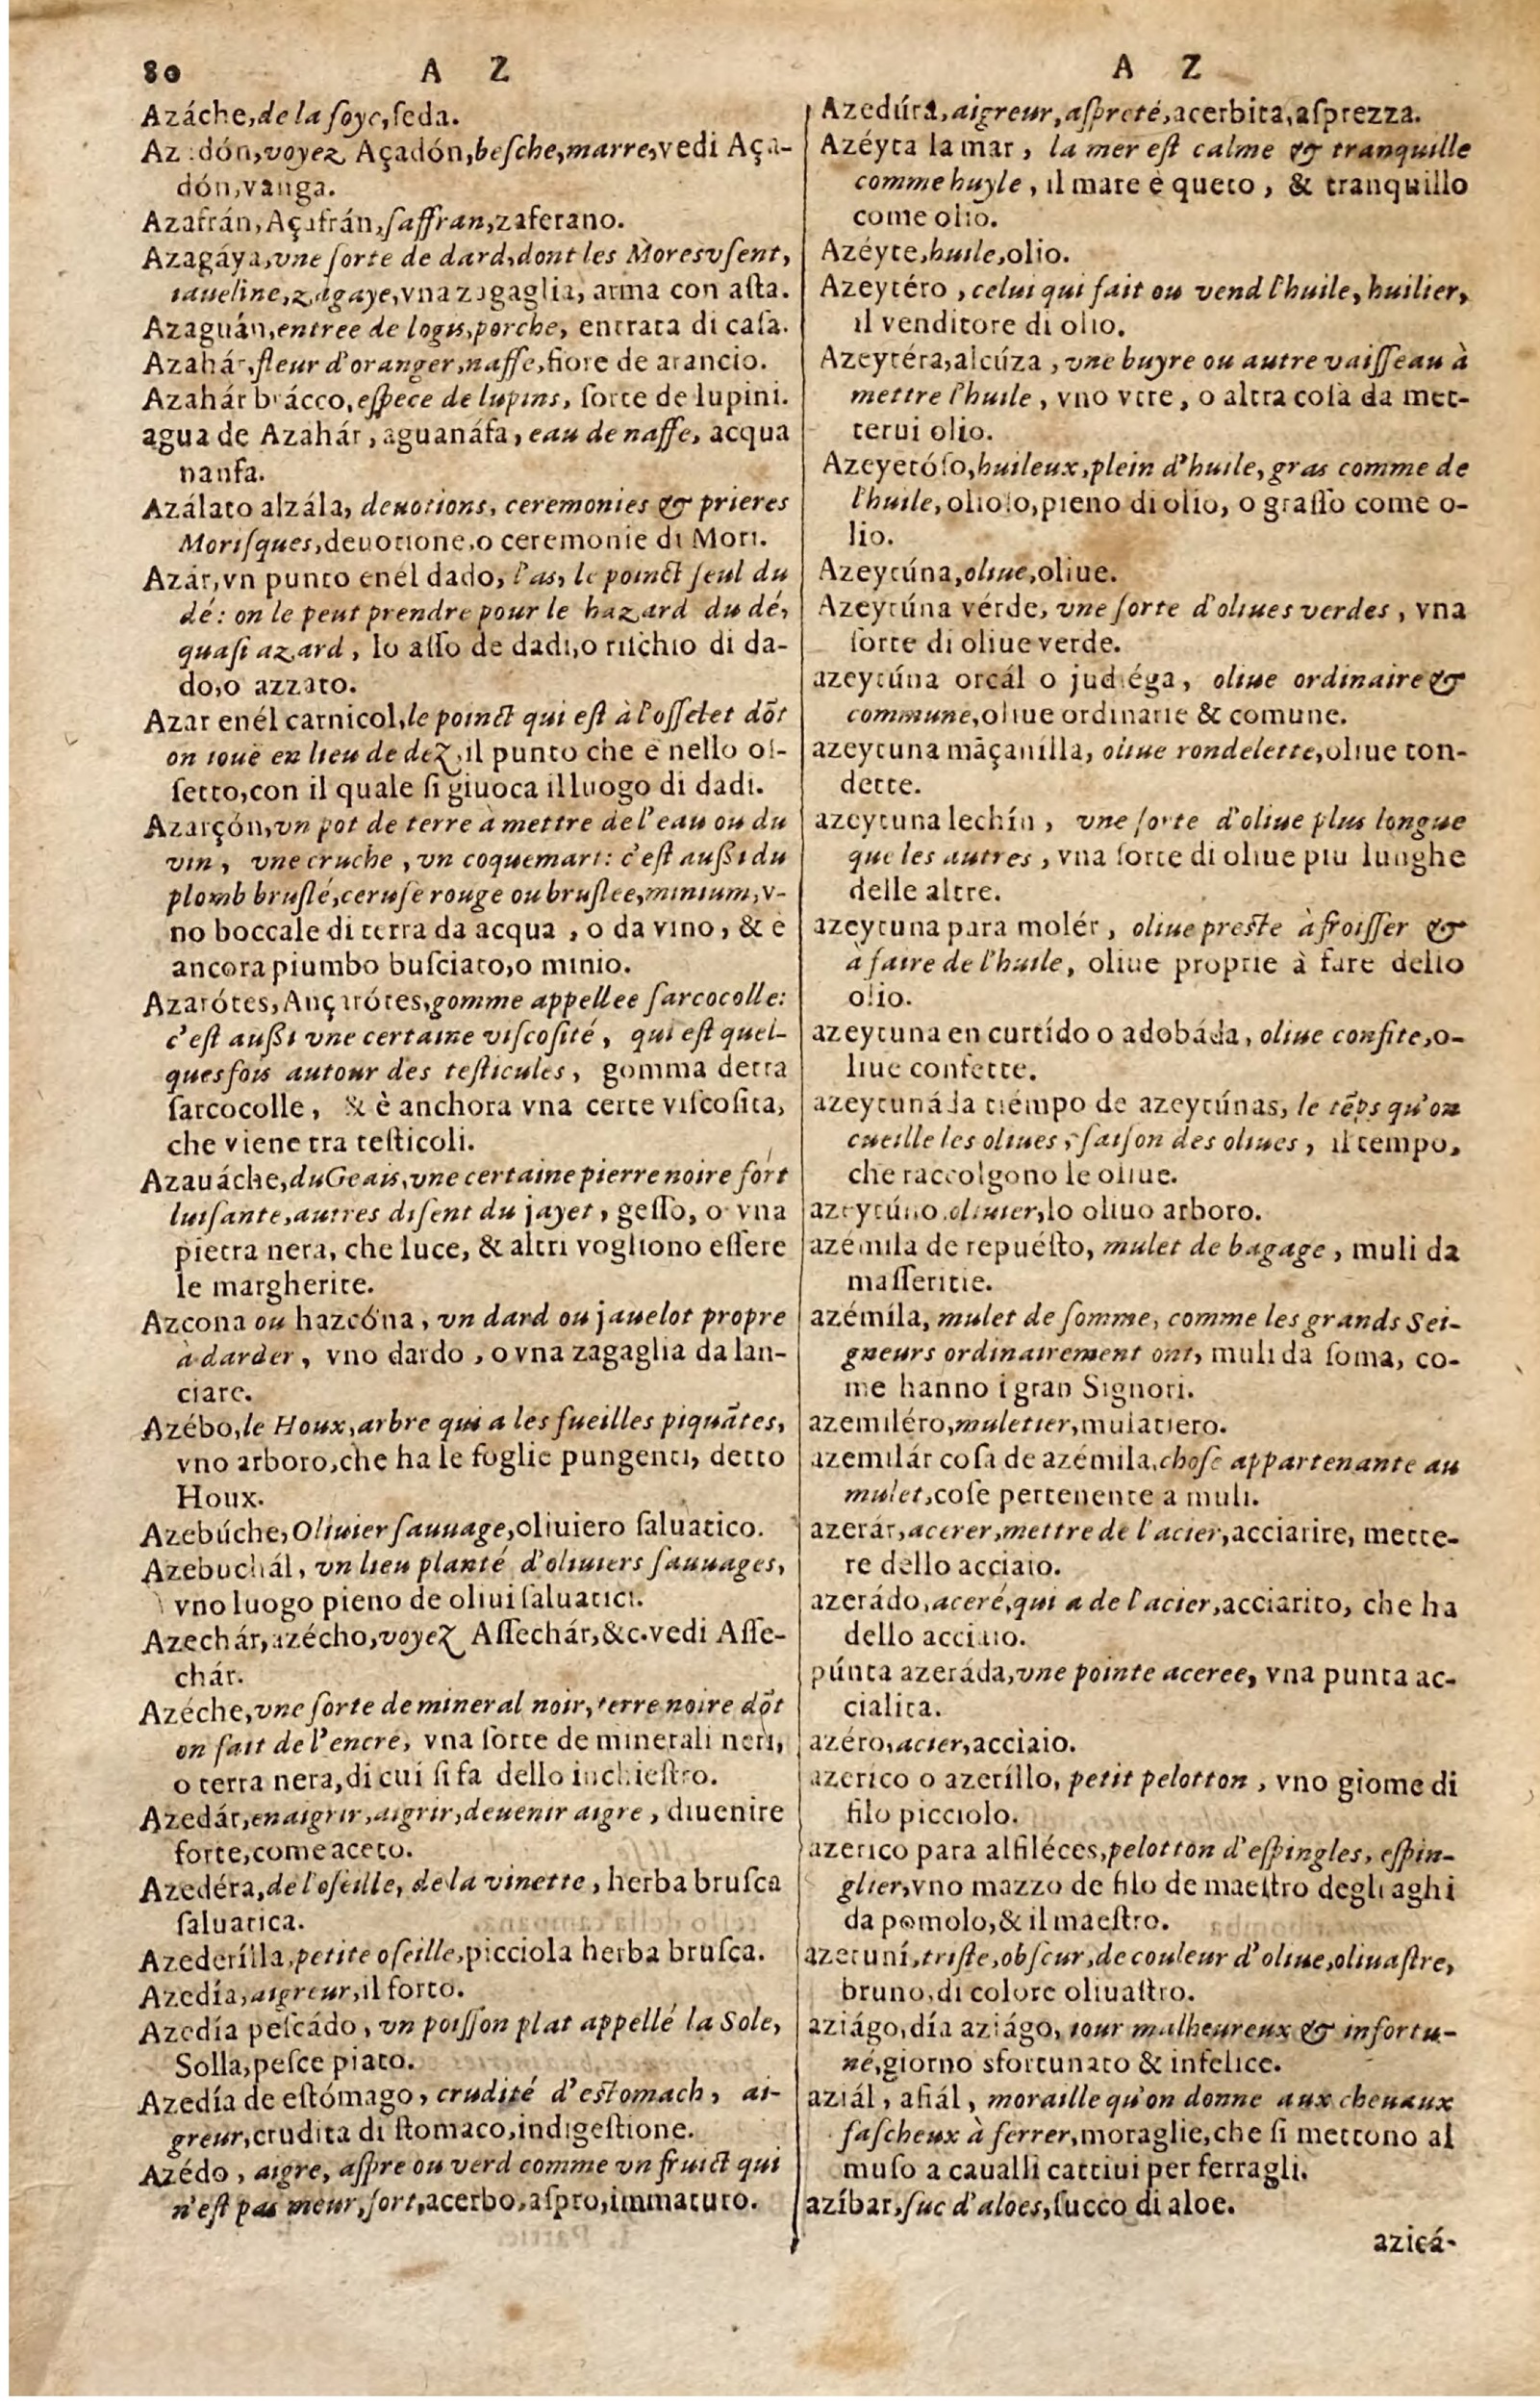 80 A Z
Azáche, de la soye, seda.
Azadón, voyez Açadón, besche, marre, vedi Aça-
dón, vanga.
Azafrán, Açafrán, saffran, zaferano.
Azagáya, vne sorte de dard, dont les Mores vsent,
iaueline, zagaye, vna zagaglia, arma con asta.
Azaguán, entree de logis, porche, entrata di casa.
Azahár, fleur d'oranger, naffe, fiore de arancio.
Azahár brácco, espece de lupins, sorte de lupini.
agua de Azahár, aguanáfa, eau de naffe, acqua
nanfa.
Azálato alzála, deuotions, ceremonies & prieres
Morisques, deuotione, o ceremonie di Mori.
Azár, vn punto enél dado, l'as, le poinct seul du
dé: on le peut prendre pour le hazard du dé,
quasi azard, lo asso de dadi, o rischio di da-
do, o azzaro.
Azar enél carnicol, le poinct qui est à l'osselet dõt
on ioue en lieu de dez, il punto che è nello os-
setto, con il quale si giuoca il luogo di dadi.
Azarçón, vn pot de terre à mettre de l'eau ou du
vin, vne cruche, vn coquemart: c'est aussi du
plomb bruslé, ceruse rouge ou bruslee, minium, v-
no boccale di terra da acqua, o da vino, & è
ancora piumbo busciato, o minio.
Azarótes, Ançarótes, gomme appellee sarcocolle:
c'est aussi vne certaine viscosité, qui est quel-
quesfois autour des testicules, gomma detta
sarcocolle, & è anchora vna certe viscosita,
che viene tra testicoli.
Azauáche, du Geais, vne certaine pierre noire fort
luisante, autres disent du jayet, gesso, o vna
pietra nera, che luce, & altri vogliono essere
le margherite.
Azcona ou hazcóna, vn dard ou jauelot propre
à darder, vno dardo, o vna zagaglia da lan-
ciare.
Azébo, le Houx, arbre qui a les fueilles piquãtes,
vno arboro, che ha le foglie pungenti, detto
Houx.
Azebúche, Oliuier sauuage, oliuiero saluatico.
Azebuchál, vn lieu planté d'oliuiers sauuages,
vno luogo pieno de oliui saluatici.
Azechár, azécho, voyez Assechár, &c. vedi Asse-
chár.
Azéche, vne sorte de mineral noir, terre noire dõt
on fait de l'encre, vna sorte de minerali neri,
o terra nera, di cui si fa dello inchiestro.
Azedár, enaigrir, aigrir, deuenir aigre, diuenire
forte, come aceto.
Azedéra, de l'oseille, de la vinette, herba brusca
saluatica.
Azederílla, petite oseille, picciola herba brusca.
Azedía, aigreur, il forto.
Azedía pescádo, vn poisson plat appellé la Sole,
Solla, pesce piato.
Azedía de estómago, crudité d'estomach, ai-
greur, crudita di stomaco, indigestione.
Azédo, aigre, aspre ou verd comme vn fruict qui
n'est pas meur, sort, acerbo, aspro, immaturo.
A Z
Azedúra, aigreur, aspreté, acerbita, asprezza.
Azéyta la mar, la mer est calme & tranquille
comme huyle, il mare è queto, & tranquillo
come olio.
Azéyte, huile, olio.
Azeytéro, celui qui fait ou vend l'huile, huilier,
il venditore di olio.
Azeytéra, alcúza, vne buyre ou autre vaisseau à
mettre l'huile, vno vtre, o altra cosa da met-
terui olio.
Azeyetóso, huileux, plein d'huile, gras comme de
l'huile, olioso, pieno di olio, o grasso come o-
lio.
Azeytúna, oliue, oliue.
Azeytúna vérde, vne sorte d'oliues verdes, vna
sorte di oliue verde.
azeytúna orcál o judiéga, oliue ordinaire &
commune, oliue ordinarie & comune.
azeytuna mãçanílla, oliue rondelette, oliue ton-
dette.
azeytuna lechín, vne sorte d'oliue plus longue
que les autres, vna sorte di oliue piu lunghe
delle altre.
azeytuna para molér, oliue preste à froisser &
à faire de l'huile, oliue proprie à fare dello
olio.
azeytuna en curtído o adobáda, oliue confite, o-
liue confette.
azeytunáda tiémpo de azeytúnas, le tẽps qu'on
cueille les oliues, saison des oliues, il tempo,
che raccolgono le oliue.
azeytúno, oliuier, lo oliuo arboro.
azémila de repuésto, mulet de bagage, muli da
masseritie.
azémíla, mulet de somme, comme les grands Sei-
gneurs ordinairement ont, muli da soma, co-
me hanno i gran Signori.
azemiléro, muletier, mulatiero.
azemilár cosa de azémila, chose appartenante au
mulet, cose pertenente a muli.
azerár, acerer, mettre de l'acier, acciarire, mette-
re dello acciaio.
azerádo, aceré, qui a de l'acier, acciarito, che ha
dello acciaio.
púnta azeráda, vne pointe aceree, vna punta ac-
cialita.
azéro, acier, acciaio.
azerico o azeríllo, petit pelotton, vno giome di
filo picciolo.
azerico para alfiléces, pelotton d'espingles, espin-
glier, vno mazzo de filo de maestro degli aghi
da pomolo, & il maestro.
azetuní, triste, obscur, de couleur d'oliue, oliuastre,
bruno, di colore oliuastro.
aziágo, día aziágo, iour malheureux & infortu-
né, giorno sfortunato & infelice.
aziál, asiál, moraille qu'on donne aux cheuaux
fascheux à ferrer, moraglie, che si mettono al
muso a caualli cattiui per ferragli.
azíbar, suc d'aloes, succo di aloe.
azicá-